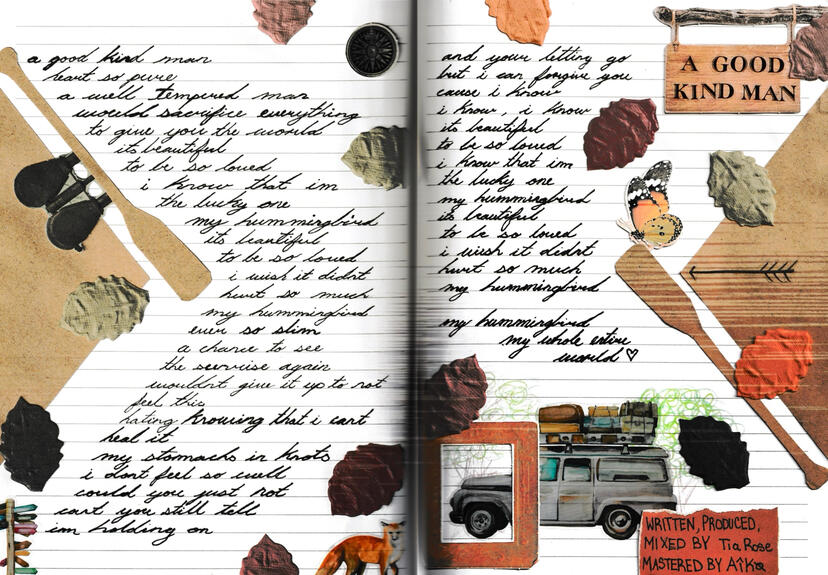 a good kind man
heart so pure
a well tempered man
would sacrifice everything
to give you the world
its beautiful
to be so loved
i know that im
the lucky one
my hummingbird
its beautiful
to be so loved
i wish it didnt
hurt so much
my hummingbird
ever so slim
a chance to see
the sunrise again
wouldnt give it up to not
feel this
hating knowing that i cant
heal it
my stomachs in knots
i dont feel so well
could you just not
cant you still tell
im holding on
and your letting go
but i can forgive you
cause i know
i know, i know
its beautiful
to be so loved
i know that im
the lucky one
my hummingbird
its beautiful
to be so loved
i wish it didnt
hurt so much
my hummingbird
my hummingbird
my whole entire
world
A GOOD
KIND MAN
WRITTEN, PRODUCED,
MIXED BY Tia Rose
MASTERED BY